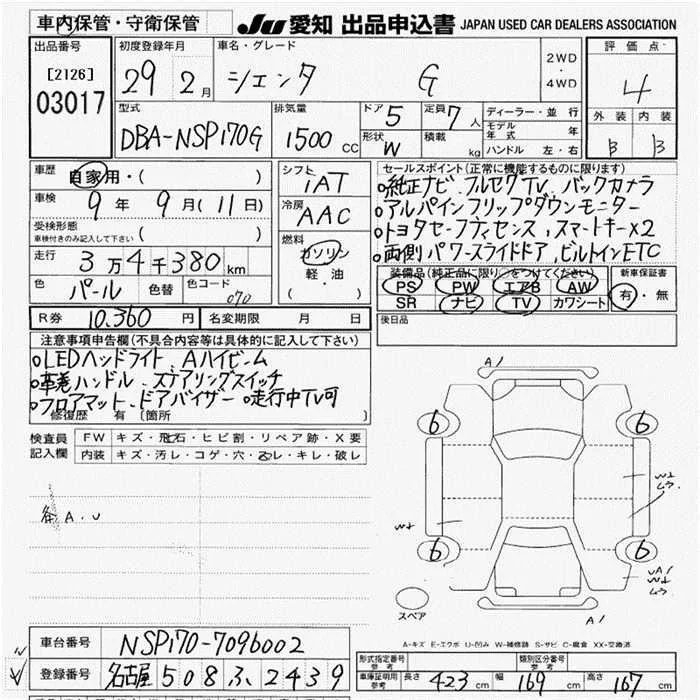 車内保管・守衛保管 JU 愛知 出品申込書 JAPAN USED CAR DEALERS ASSOCIATION
出品番号 [2126] 03017
初度登録年月 29 2月
車名・グレード シエンタ G
2WD・4WD
評価点 4
外装 B 内装 B
型式 DBA-NSP170G
排気量 1500 CC
ドア 5 定員 7人
形状 W 積載 kg
ディーラー・並行
モデル年式 年
ハンドル 左・右
車歴 自家用・( )
車検 9年 9月(11日)
受検形態 ( )
車検付きのみ記入して下さい
走行 3万4千380km
色 パール 色替 色コード 070
シフト IAT
冷房 AAC
燃料 ガソリン 軽・油 ( ・ )
セールスポイント(正常に機能するものに限ります)
○純正ナビ、フルセグTV、バックカメラ
○アルパインフリップダウンモニター
○トヨタセーフティセンス、スマートキーx2
○両側パワースライドドア、ビルトインETC
装備品(純正品に限り○をつけてください)
PS PW エアB AW
SR ナビ TV カワシート
新車保証書 有・無
R券 10,360円 名変期限 月 日
後日品
注意事項申告欄(不具合内容等は具体的に記入して下さい)
○LEDヘッドライト、Aハイビーム
○革巻ハンドル、ステアリングスイッチ
○フロアマット、ドアバイザー ○走行中TV可
修復歴 有 [箇所
検査員記入欄
FW キズ・飛石・ヒビ割・リペア跡・X要
内装 キズ・汚レ・コゲ・穴・スレ・キレ・破レ
各A.U
A1
6 6
W1 ムラ
W1
6 6
UA1 W1 ムラ
A1
スペア
A-キズ E-エクボ U-凹み W-補修跡 S-サビ C-腐食 XX-交換済
車台番号 NSP170-7096002
登録番号 名古屋 508 ふ 2439
形式指定番号 参考 類別区分番号 参考
車庫証明用 参考 長さ 423cm 幅 169cm 高さ 167cm